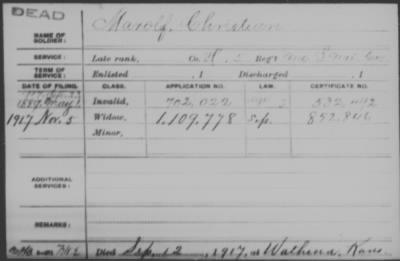 DEAD
NAME OF SOLDIER: Marolf, Christian
SERVICE: Late rank, Co. H, 5 Reg't Mo. S. M. Cav.
TERM OF SERVICE: Enlisted , 1 Discharged , 1
DATE OF FILING. CLASS. APPLICATION NO. LAW. CERTIFICATE NO.
1889 May 1 Invalid, 702,022 532,442
1917 Nov. 5 Widow, 1,109,778 Sep. 852,846
Minor,
ADDITIONAL SERVICES:
REMARKS:
Died Sep. 12, 1917, at Wathena, Kans.